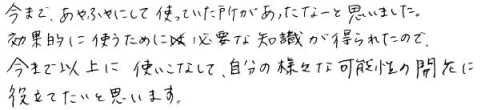 今まで、あやふやにして使っていた所があったなーと思いました。
効果的に使うために必要な知識が得られたので、
今まで以上に使いこなして、自分の様々な可能性の開花に
役立てたいと思います。